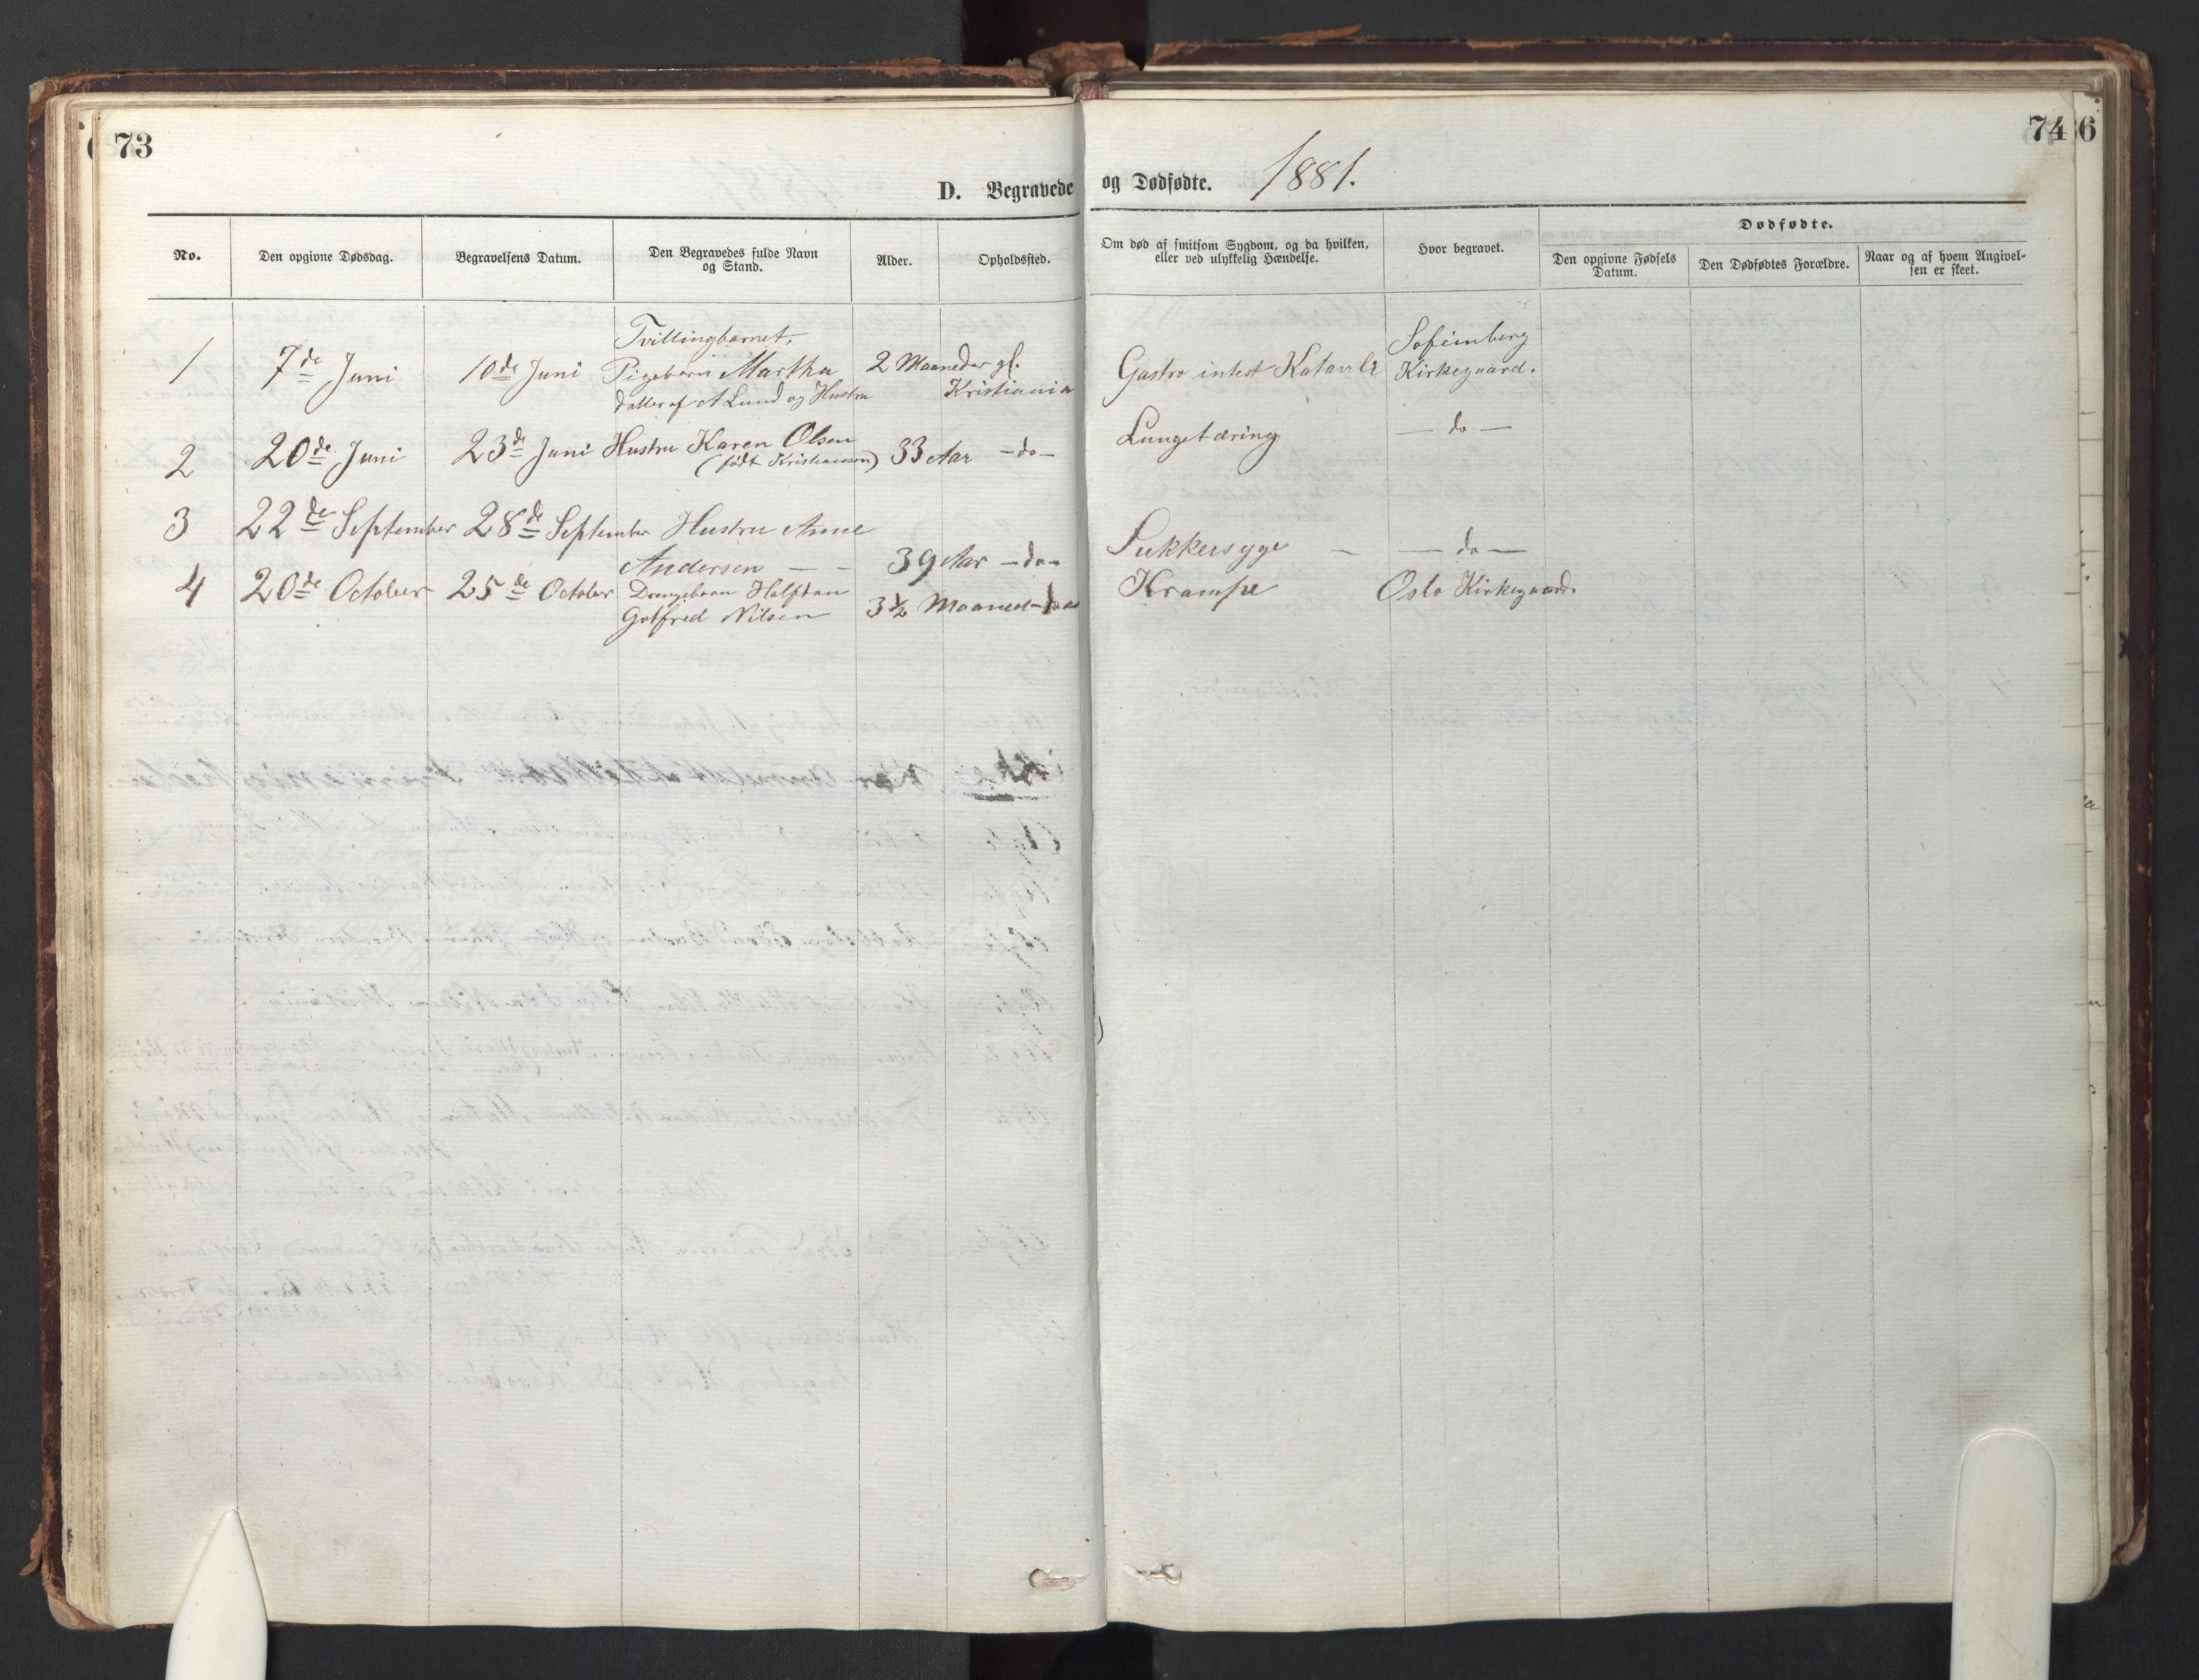 73
74
6
D. Begravede og Dødfødte. 1881.
No.
Den opgivne Dødsdag.
Begravelsens Datum.
Den Begravedes fulde Navn
og Stand.
Alder.
Opholdssted.
Om død af smitsom Sygdom, og da hvilken,
eller ved ulykkelig Hændelse.
Hvor begravet.
Dødfødte.
Den opgivne Fødsels
Datum.
Den Dødfødtes Forældre.
Naar og af hvem Angivel-
sen er skeet.
1 7de Juni 10de Juni
Tvillingbarnet,
Pigebarn Martha
datter af A Lund og Hustru
2 Maaneder gl.
Kristiania
Gastro intest
Sofienberg
Kirkegaard.
2 20de Juni 23de Juni Hustru Karen Olsen
(født Kristiansen) 33 Aar – do –
Lungetæring
— do —
3 22de September 28de September Hustru Anne
Andersen — — 39 Aar – do –
Sukkersyge — — do —
4 20de October 25de October Drengebarn Halfdan
Gotfred Nilsen 3½ Maaned
Krampe Oslo Kirkegaard.